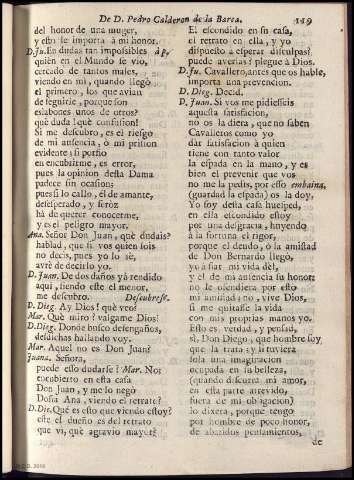 De D. Pedro Calderon de la Barca. 119
del honor de una muger,
y esto le importa à mi honor.
D. Ju. En dudas tan impossibles à p,
quièn en el Mundo se viò,
cercado de tantos males,
viendo en mi, quando llegò
el primero, los que avian
de seguirle, porque son
eslabones unos de otros?
què duda! què confusion!
Si me descubro, es el riesgo
de mi ausencia, ò mi prision
evidente; si porfio
en encubrirme, es error,
pues la opinion desta Dama
padece sin ocasion;
pues si lo callo, èl de amante,
desesperado, y feròz
hà de querer conocerme,
y es el peligro mayor.
Ana. Señor Don Juan, què dudais?
hablad, que si vos quien sois
no decis, pues yo lo sè,
avrè de decirlo yo.
D. Juan. De dos daños yà rendido
aqui, siendo este el menor,
me descubro. Descubrese.
D. Dieg. Ay Dios! què veo?
Mar. Què miro? valgame Dios!
D. Dieg. Donde busco desengaños,
desdichas hallando voy.
Mar. Aquel no es Don Juan?
Juana. Señora,
puede esso dudarse? Mar. No:
encubierto en esta casa
Don Juan, y me lo negò
Doña Ana, viendo el retrato?
D. Die. Què es esto que viendo estoy?
este el dueño es del retrato
que vi, què agravio mayor?
El escondido en su casa,
el retrato en ella, y yo
dispuesto à esperar disculpas?
puede averlas? plegue à Dios.
D. Ju. Cavallero, antes que os hable,
importa una prevencion.
D. Dieg. Decid.
D. Juan. Si vos me pidiesseis
aquesta satisfacion,
no os la diera, que no saben
Cavalleros como yo
dar satisfacion à quien
tiene con tanto valor
la espada en la mano, y es
bien el prevenir que vos
no me la pedis, por esso embaina.
(guardad la espada) os la doy.
Yo soy desta casa huesped,
en ella escondido estoy
por una desgracia, huyendo
à la fortuna el rigor,
porque el deudo, ò la amistad
de Don Bernardo llegò,
yo à fiar mi vida dèl,
y èl de mi ausencia su honor:
no le ofendiera por esto
mi amistad; no, vive Dios,
si me quitasse la vida
con mis propias manos yo.
Esto es verdad, y pensad,
si, Don Diego, que hombre soy
que la trata; y si tuviera
sola una imaginacion
ocupada en su belleza,
(quando discreta mi amor,
en esta parte atrevido,
fuera de mi obligacion)
lo dixera, porque tengo
por hombre de poco honor,
de abatidos pensamientos,
de